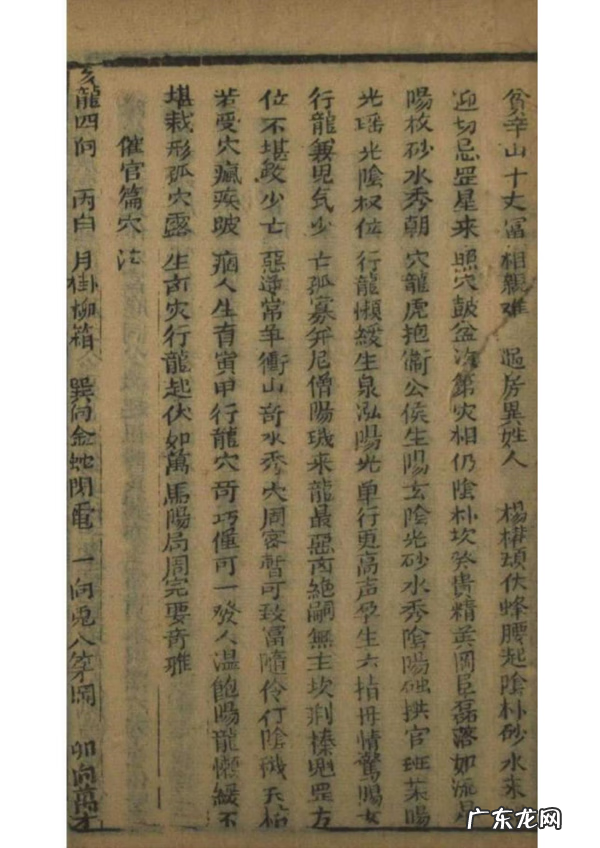 貧辛山十丈冨相親难 過房異姓人 楊横頭伏蜂腰起陰朴砂水来
迎切忌罡星来照穴鼓盆次第灾相仍陰朴坎癸貴精英岡阜磊落如流星
陽枚砂水秀朝穴龍虎抱衞公侯生陽玄陰光砂水秀陰陽拱官班葉陽
光瑶光陰权位行龍懶緩生泉泓陽光单行更高声孕生六指母情驚陽
行龍氣少亡孤寡并尼僧陽璣来龍最惡丙絶嗣無主坎刹榛鬼罡方
位不堪少亡惡逆常争衝山奇水秀穴周密暫可致富隨伶仃陰璣天
若受穴瘋疾跛痼人生有寅甲行龍穴奇巧僅可一發人温飽陽龍懶緩不
堪栽形孤穴露生奇灾行龍起伏如萬馬陽局周完要奇雅
催官篇穴法
亥龍四向 丙向月掛柳箱 巽向金蛇閃電 一向兎入岡 卯向萬
广东龙网